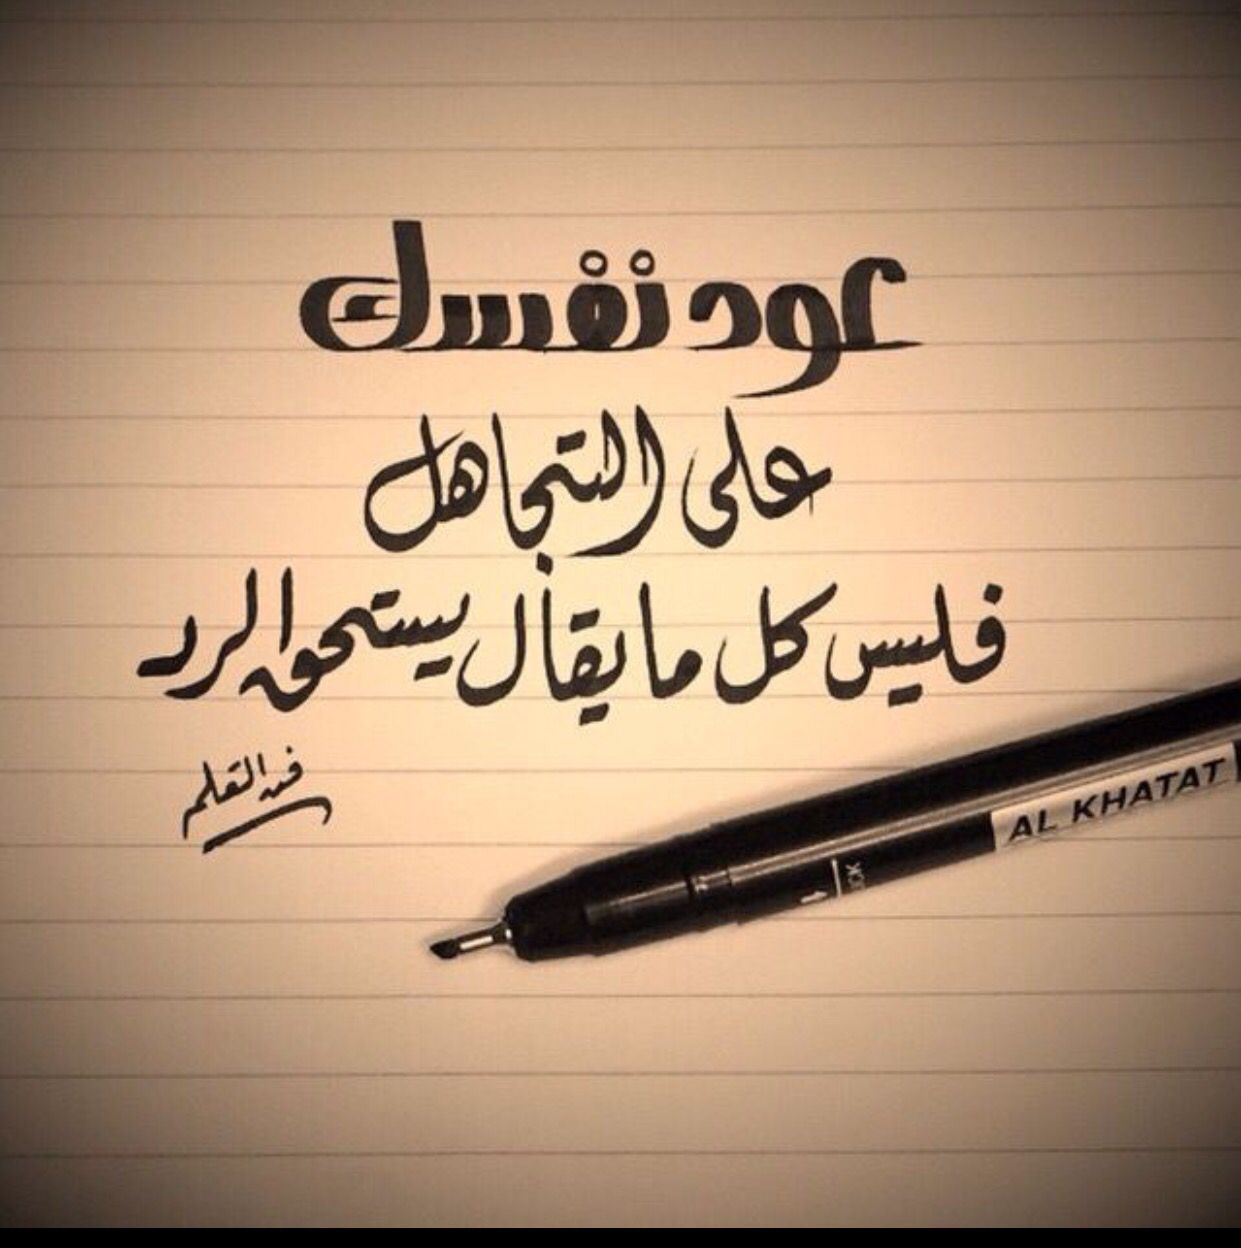 عود نفسك
على التجاهل
فليس كل ما يقال يستحق الرد
القلم
AL KHATAT